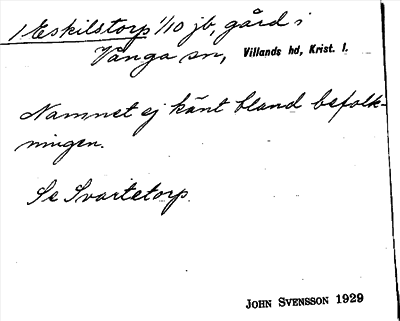 1 Eskilstorp 1/10 jb, gård i
Vånga sn, Villands hd, Krist. l.
Namnet ej känt bland befolk-
ningen.
Se Svartetorp.
JOHN SVENSSON 1929